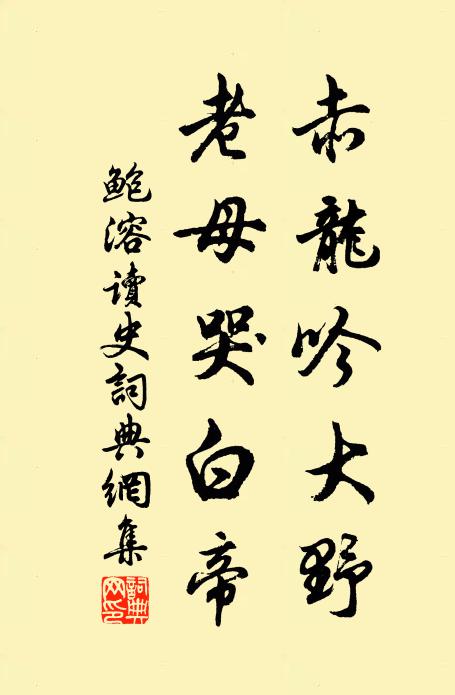 赤龍吟大野
老母哭白帝
鮑溶讀史詞典網集
詞典網印